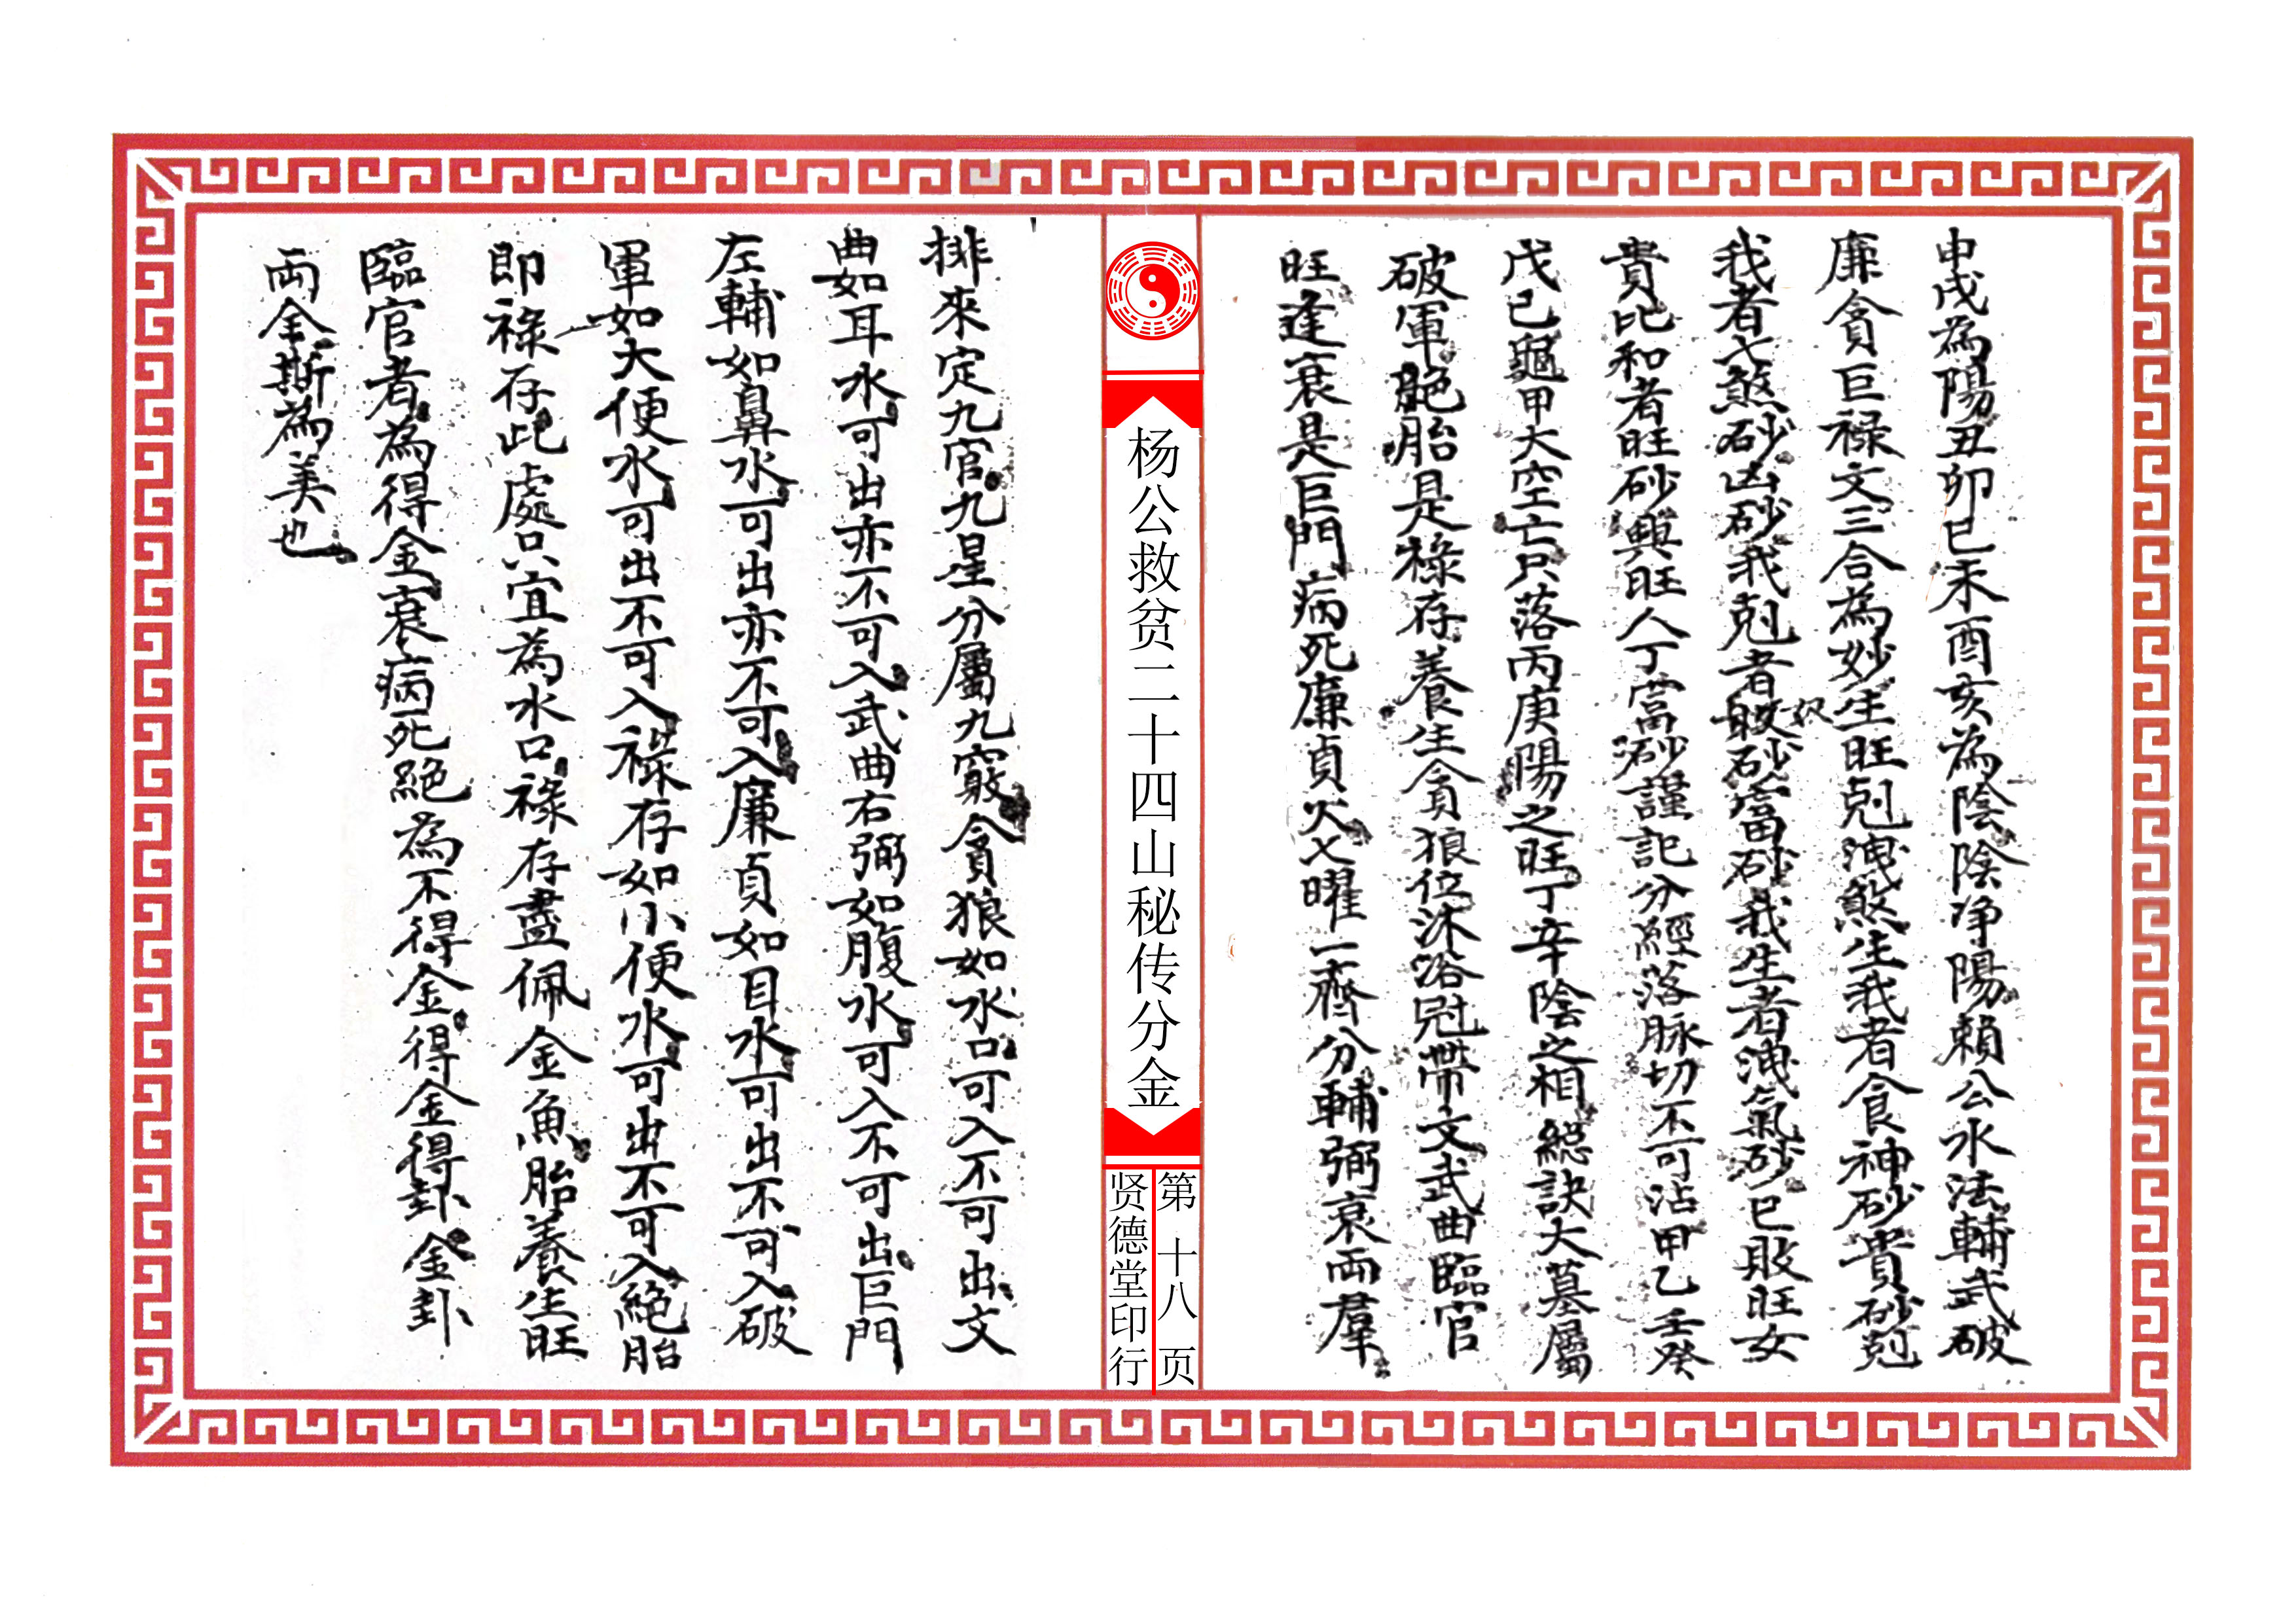 申戌為陽丑卯巳未酉亥為陰陰净陽賴公水法輔武破
廉貪巨禄文三合為妙生旺剋洩煞生我者食神砂貴砂剋
我者七煞砂凶砂我剋者敗砂富砂我生者洩氣砂已敗旺女
奴
貴比和者旺砂興旺人丁富砂謹記分經落脉切不可沾甲乙壬癸
戊己龜甲大空亡只落丙庚陽之旺丁辛陰之相總訣大墓屬
破軍絶胎是祿存養生貪狼位沐浴冠帶文武曲臨官
旺逢衰是巨門病死廉貞火七曜一齊分輔弼衰兩羣
杨公救贫二十四山秘传分金
第十八页
贤德堂印行
排來定九宮九星分屬九竅貪狼如水口可入不可出文
曲如耳水可出亦不可入武曲右弼如腹水可入不可出巨門
左輔如鼻水可出亦不可入廉貞如目水可出不可入破
軍如大便水可出不可入祿存如小便水可出不可入絕胎
即祿存此處只宜為水口祿存盡佩金魚胎養生旺
臨官者為得金衰病死絕為不得金得金得卦金卦
兩全斯為美也